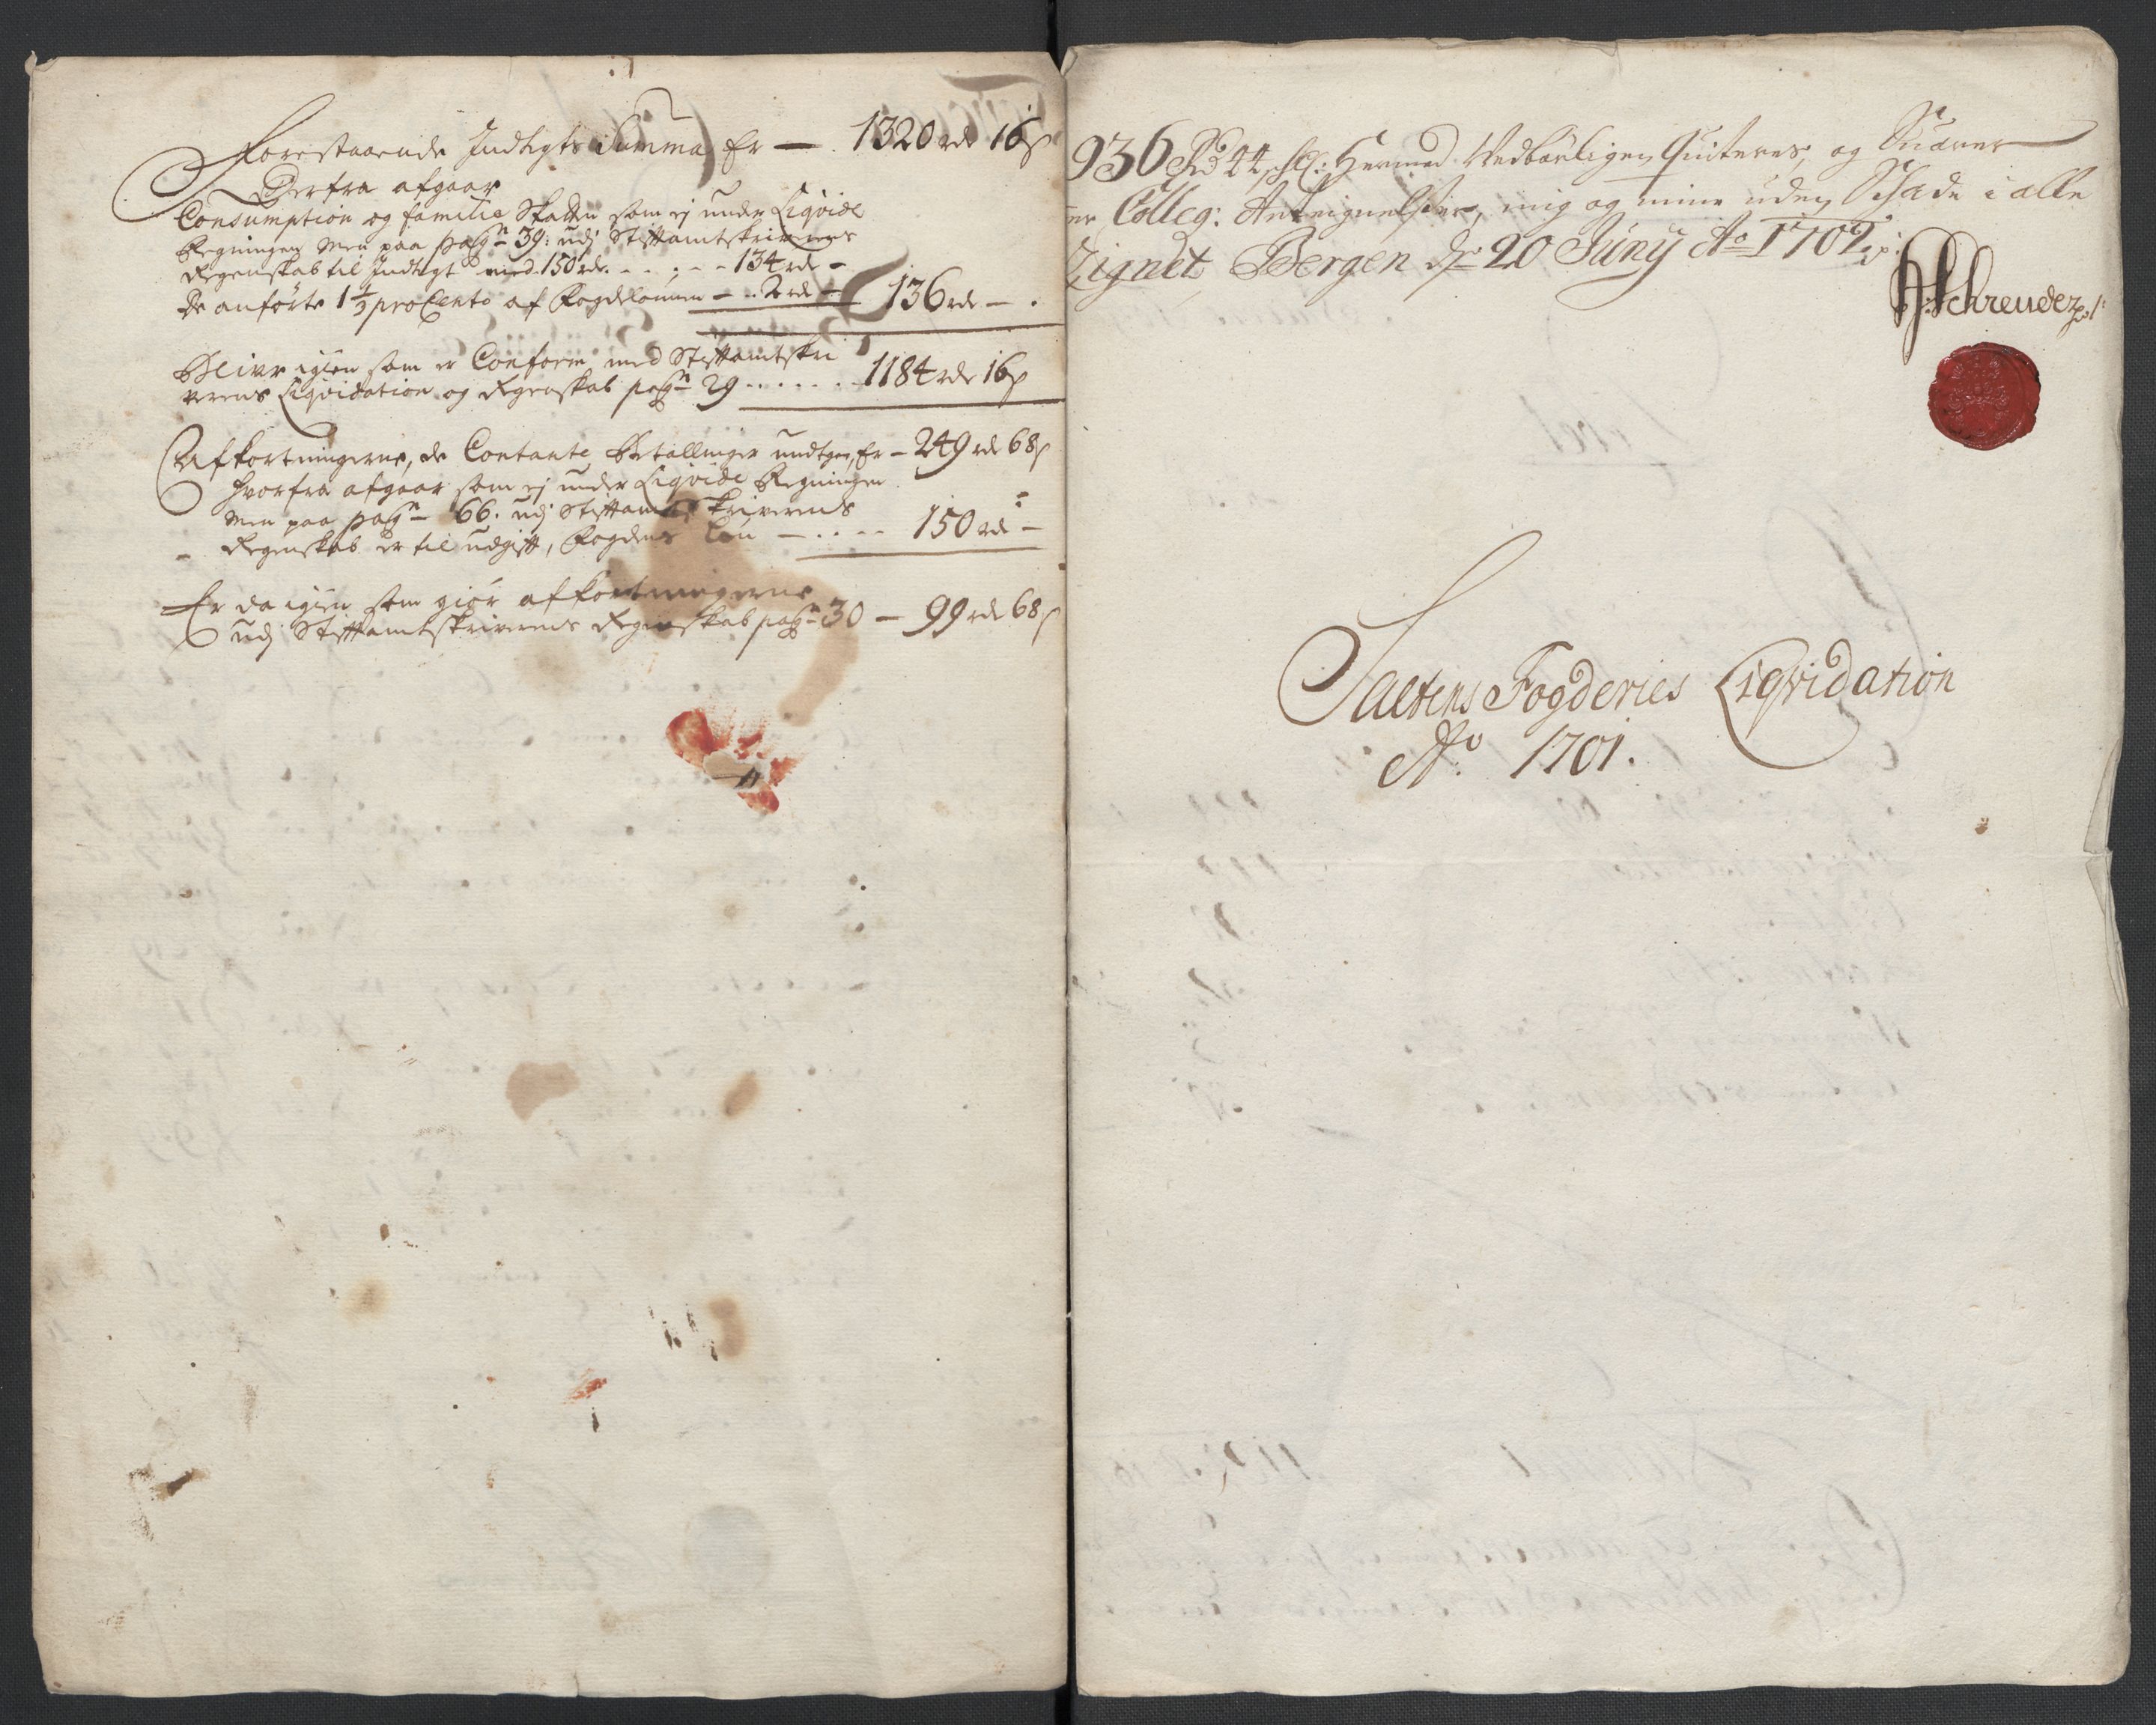 Forestaaende Indtegts Summa Er — 1320 rdr 16 s
Derfra afgaar
Consumption og familie Skatten som ej under Liqvide
Regningen men paa pag 39: udj Stiftamtskriverens
Regenskab til Indtegt med 150 rdr. - - - - 134 rdr -
De anførte 1½ pro Cento af Fogdelønnen - . 2 rdr - 136 rdr - .
Bliver igien som er Conform med Stiftamtskri
verens Liqvidation og Regenskab pag 29 . . . . . . 1184 rdr 16 s
Afkortningerne, de Contante Betallinger undtgen, Er - 249 rdr 68 s
hvorfra afgaar som ej under Liqvide Regningen
men paa pag 66. udj Stiftamtskriverens
Regenskab er til udgift, Fogdens Løn - . . - - 150 rdr -
Er da igien som giør afkortningerne
udj Stiftamtskriverens Regenskab pag 30 - 99 rdr 68 s
936 Rd 44 sk: Hermed Vedbørligen Quiteres, og Suarer
er Colleg: Anteignelser, mig og mine uden Schade i alle
Zignet Bergen de 20 Juny Ao 1702
Schreuder
Saltens Fogderies Liqvidation
Ao. 1701.